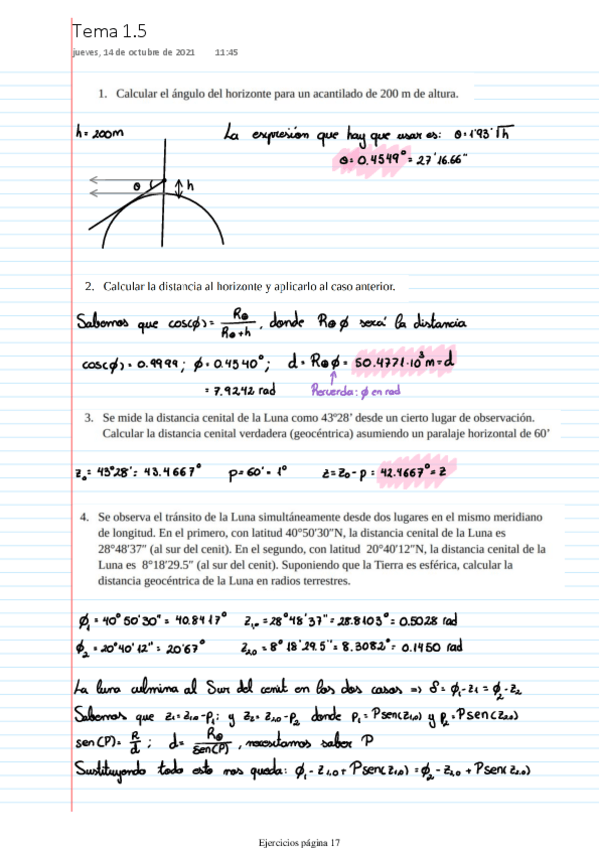 Tema 1.5
jueves, 14 de octubre de 2021 11:45
1. Calcular el ángulo del horizonte para un acantilado de 200 m de altura.
h = 200m La expresión que hay que usar es: θ = 1'93 √h
θ = 0.4549° = 27' 16.66"
θ h
2. Calcular la distancia al horizonte y aplicarlo al caso anterior.
Sabemos que cos(ϕ) = R⊕/(R⊕+h), donde R⊕ ϕ será la distancia
cos(ϕ) = 0.9999 ; ϕ = 0.4540° ; d = R⊕ϕ = 50.4771·10³ m = d
= 7.9242 rad Recuerda: ϕ en rad
3. Se mide la distancia cenital de la Luna como 43º28' desde un cierto lugar de observación.
Calcular la distancia cenital verdadera (geocéntrica) asumiendo un paralaje horizontal de 60'
z₀ = 43°28' = 43.4667° p = 60' = 1° z = z₀ - p = 42.4667° = z
4. Se observa el tránsito de la Luna simultáneamente desde dos lugares en el mismo meridiano
de longitud. En el primero, con latitud 40°50'30"N, la distancia cenital de la Luna es
28°48'37" (al sur del cenit). En el segundo, con latitud 20°40'12"N, la distancia cenital de la
Luna es 8°18'29.5" (al sur del cenit). Suponiendo que la Tierra es esférica, calcular la
distancia geocéntrica de la Luna en radios terrestres.
ϕ₁ = 40° 50' 30" = 40.8417° z₁,₀ = 28° 48' 37" = 28.8103° = 0.5028 rad
ϕ₂ = 20° 40' 12" = 20'67° z₂,₀ = 8° 18' 29.5" = 8.3082° = 0.1450 rad
La luna culmina al Sur del cenit en los dos casos ⇒ δ = ϕ₁ - z₁ = ϕ₂ - z₂
Sabemos que z₁ = z₁,₀ - p₁ ; y z₂ = z₂,₀ - p₂ donde p₁ = P sen(z₁,₀) y p₂ = P sen(z₂,₀)
sen(P) = R/d ; d = R⊕/sen(P) , necesitamos saber P
Sustituyendo todo esto nos queda: ϕ₁ - z₁,₀ + P sen(z₁,₀) = ϕ₂ - z₂,₀ + P sen(z₂,₀)
Ejercicios página 17